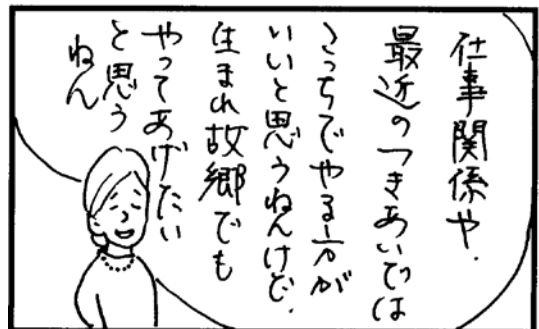 仕事関係や、
最近のつきあいでは
こっちでやる方が
いいと思うねんけど、
生まれ故郷でも
やってあげたい
と思う
ねん